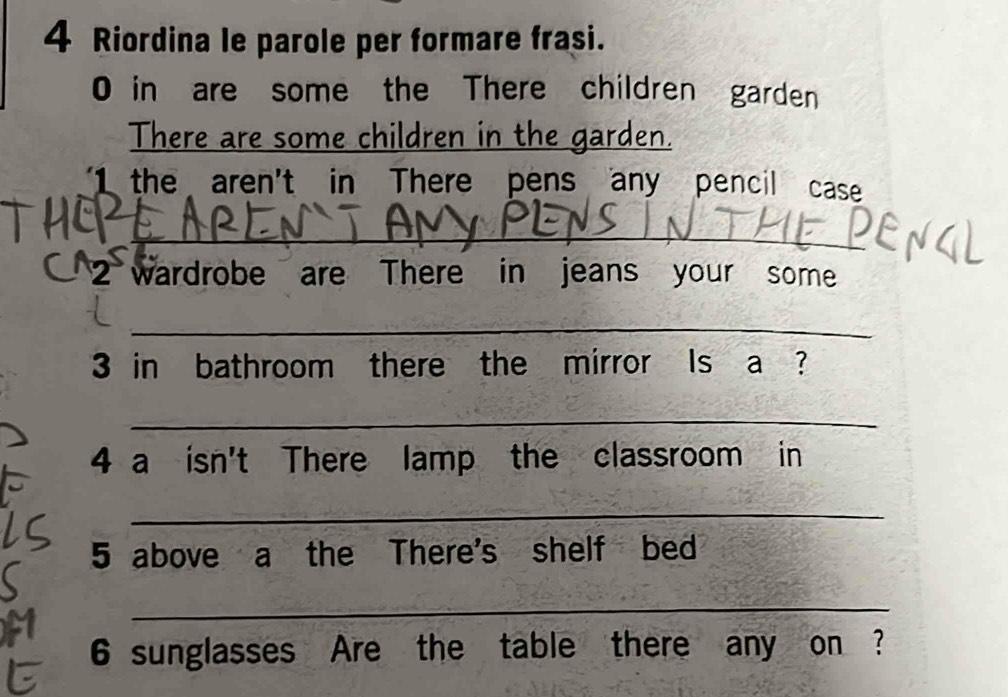 4 Riordina le parole per formare frasi.
0 in are some the There children garden
There are some children in the garden.
1 the aren't in There pens any pencil case
THERE AREN'T ANY PENS IN THE PENCIL
CASE
2 wardrobe are There in jeans your some
3 in bathroom there the mirror Is a ?
4 a isn't There lamp the classroom in
5 above a the There's shelf bed
6 sunglasses Are the table there any on ?